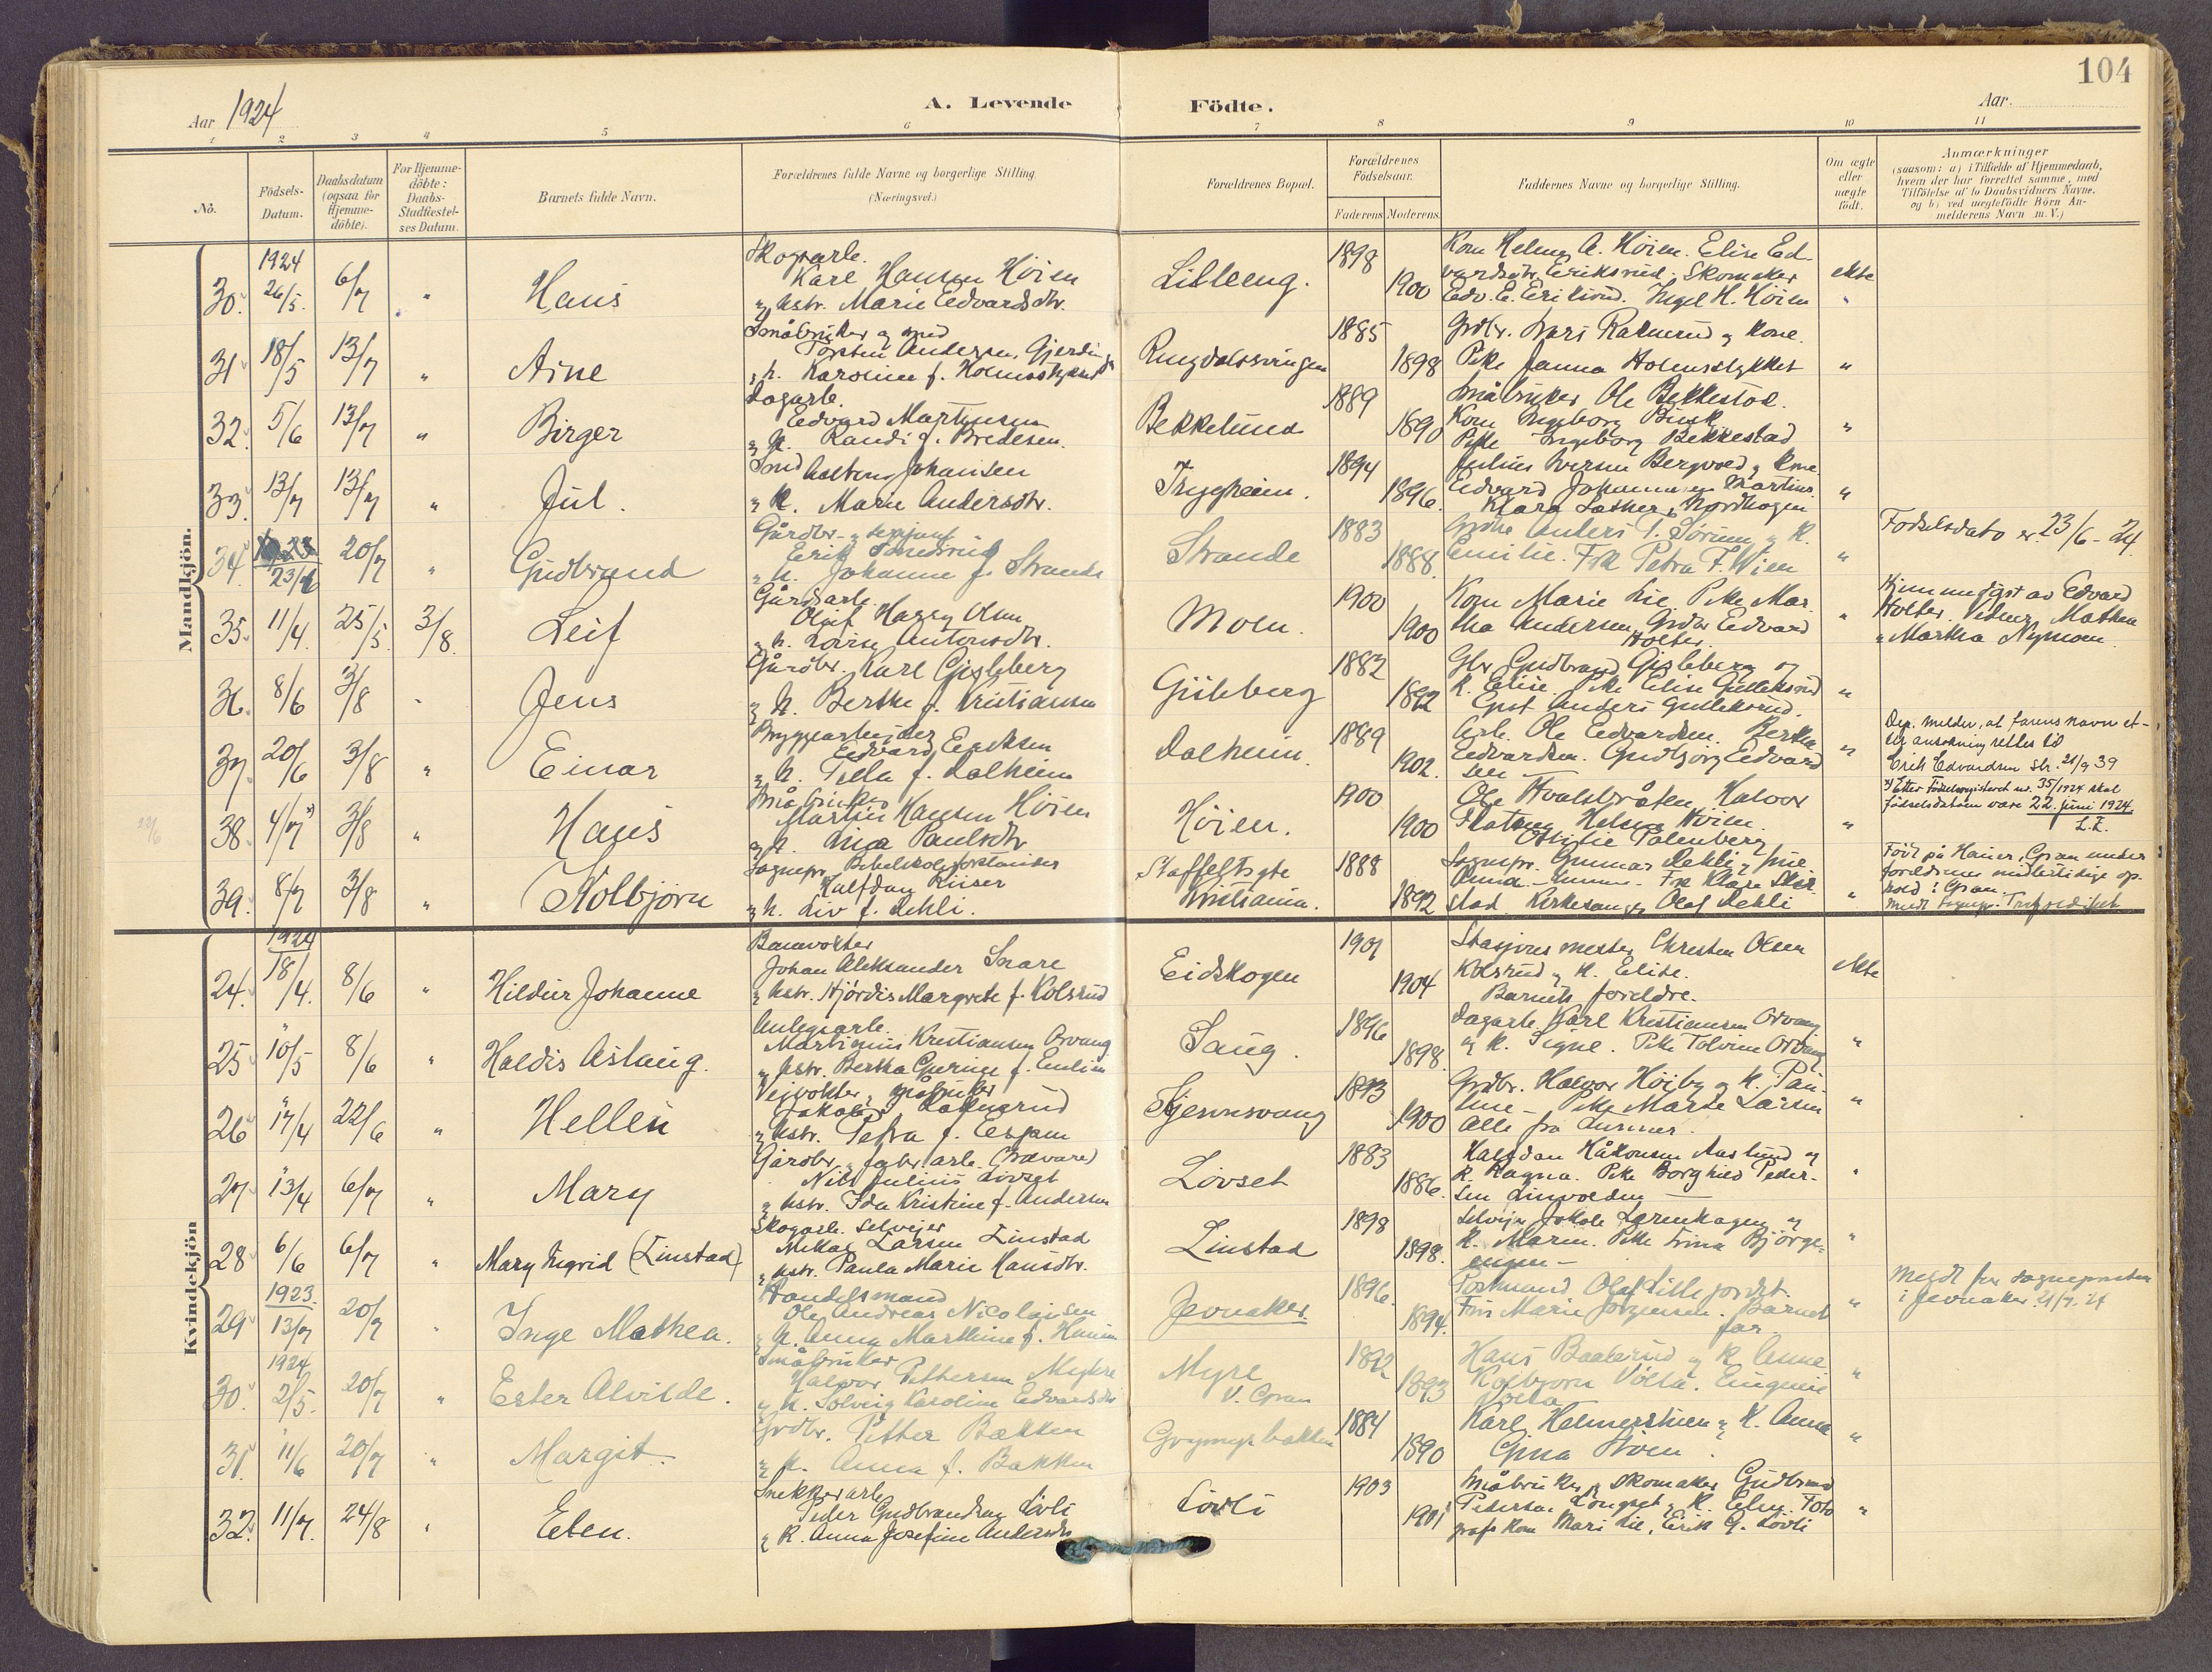 104
Aar 1924
A. Levende Födte.
Aar.
1 2 3 4 5 6 7 8 9 10 11
No.
Födsels-Datum.
Daabsdatum (ogsaa for Hjemme-döbte).
For Hjemme-döbte: Daabs-Stadfæstel-ses Datum.
Barnets fulde Navn.
Forældrenes fulde Navne og borgerlige Stilling (Næringsvei.)
Forældrenes Bopæl.
Forældrenes Födselsaar.
Faderens Moderens
Faddernes Navne og borgerlige Stilling.
Om ægte eller uægte födt.
Anmærkninger
(saasom: a) i Tilfælde af Hjemmedaab,
hvem der har forrettet samme, med
Tilföielse af to Daabsvidners Navne.
og b) ved uægtefödte Börn An-
melderens Navn m. V.)
Mandkjön.
30. 1924 26/5. 6/7 " Hans
Skogarb.
Karl Hansen Höien
og hstr. Marie Edvardsdtr.
Lilleeng. 1898 1900
Kone Helmer A. Höien. Elise Ed-
vardsdtr. Eriksrud. Skomaker
Edv. E. Eriksrud. Ingel H. Höien
ekte
31 18/5 13/7 " Arne
Småbruker og smed
Torsten Andersen Gjerdingen
og h. Karoline f. Holmsstykket
Ringdalssvingen 1885 1898
Grdbr. Lars Raknerud og kone.
Pike Janna Holmsstykket "
32. 5/6 13/7 " Birger
Sagarb.
Edvard Martinsen
og h. Randi f. Bredesen.
Bekkelund 1889 1890
Småbruker Ole Bekkestad.
Kone Ingeborg Busk
Pike Ingeborg Bekkestad "
33. 13/7 13/7 " Jul.
Smed Johansen
og k. Marie Andersdtr.
Trygheim. 1894 1896.
Julius Iversen Bergvold og kone
Edvard Johannesen
Klara Nordhagen "
34. 23/6 20/7 " Gudbrand
Gårdbr.
Erik
og h. Johanne f. Strande
Strande 1883 1888.
Anders T. Sörum og k.
Emilie. Frk Petra F. Wien "
Födselsdato er 23/6 - 24.
35. 11/4. 25/5. 3/8. Leif
Gårdsarb.
Olaf Hagen Olsen
og h. Lovise Antonsdtr.
Moen. 1900 1900
Kone Marie Lie Pike Mar-
tha Andersen, Grdbr Edvard
Holter. "
Hjemmedöpt av Edvard
Holter. Vidner Mathea
og Martha Nymoen
36. 8/6 3/8 - Jens
Gårdbr. Karl Gisleberg
og h. Berthe f. Kristiansen
Gisleberg 1882 1892
Gbr Gudbrand Gisleberg og
k. Elise. Pike Elise Gulleksrud
Anders Gulleksrud. "
37. 20/6 3/8 " Einar
Bryggearbeider
Edvard Eriksen
og h. Tilla f. Dalheim
Dalheim. 1889 1902.
Arb. Ole Edvardsen. Bertha
Edvardsen. Gudbjörg Edvard
sen "
Dep. melder, at farens navn et-
ter ansökning rettes til
Erik Edvardsen Str. 21/9 39
22/6
38. 4/7 x) 3/8 " Hans
Småbruker
Martin Hansen Höien
og h. Lina Paulsdtr.
Höien. 1900 1900
Ole Hvalsbråten, Halvor
Helmer Höien.
Ottilie Palenberg "
x) Etter Födselsregisteret nr. 35/1924 skal
födselsdatoen være 22. juni 1924.
39. 8/7 3/8 " Kolbjörn
Sognepr. Bibelskoleforstander
Halfdan Riiser
og h. Liv f. Dehli.
Staffeltsgte
Kristiania. 1888 1892
Sognepr. Gunnar Dehli og frue
Anna - Lunner. Frk Klara
stad. Kirkesanger Olaf Dehli "
Född på Haner, Gran under
foreldrenes midlertidige op-
hold i Gran.
Kvindekjön
24. 1924 18/4. 8/6 " Hildur Johanne
Banevokter
Johan Aleksander Snare
og hstr. Hjördis Margrete f. Kolsrud
Eidskogen 1901 1904
Stasjonsmester Christen Olsen
Kolsrud og h. Elise.
Barnets foreldre.
ekte
25 10/5 8/6 " Haldis Aslaug.
Anlegsarb.
Martinius Kristiansen Orvang
og hstr. Bertha Gurine f. Emlien
Saug. 1896 1898.
Dagarb. Karl Kristiansen Orvang
og k. Signe. Pike Tolvine Orvang "
26 17/4 22/6 " Hellen
Veivokter og småbruker
Jakob Raknerud
og hstr. Petra f. Espen
Stjernsvang 1893 1900
Grdbr. Halvor Höiby og k. Pau-
line - Pike Marte Larsen
Alle fra Lunner. "
27 13/4 6/7 " Mary
Gårdbr. og fabr. arb.
Nils Julius Lövset
og hstr. Ida Kristine f. Andersen
Lövset 1883 1886.
Halfdan Håkonsen Aaslund og
k. Ragna. Pike Borghild Peder-
sen "
28 6/6 6/7 " Mary Ingrid (Linstad)
Skogarb. selveier
Mikal Larsen Linstad
og hstr. Paula Marie Hansdtr.
Linstad 1898 1898.
Selveier Jakob Larenhagen og
k. Maren. Pike Trina Björge-
engen - "
29 1923. 13/7 20/7 " Inge Mathea.
Handelsmand
Ole Andreas Nicolaisen
og h. Anna Marthine f. Hansen
Jevnaker. 1896. 1894.
Postmand Olaf Lillejordet.
Frue Marie Jörgensen. Barnets
far. "
Meldt fra sognepresten
i Jevnaker. 21/7. 24
30. 1924 2/5. 20/7 " Ester Alvilde.
Småbruker
Halvor Pettersen Myhre
og h. Solveig Karoline Edvardsdtr
Myre
V. Gran 1892 1893
Hans Baaberud og k. Anne
Kolbjorn Volla. Eugenie
Volla "
31. 11/6 20/7 " Margit.
Grdbr. Petter Bakken
og h. Anna f. Bakken
1884 1890
Karl Helmerstuen og k. Anna
Gina Moen. "
32. 11/7. 24/8 " Eben.
Snekkerarb
Peder Gudbrandsen Lövli
og k. Anna Josefine Andersdtr
Lövli 1903 1901
Småbruker og skomaker Gudbrand
Pedersen og k. Foto
graf kone Mari Lie, Erik G. Lövli "